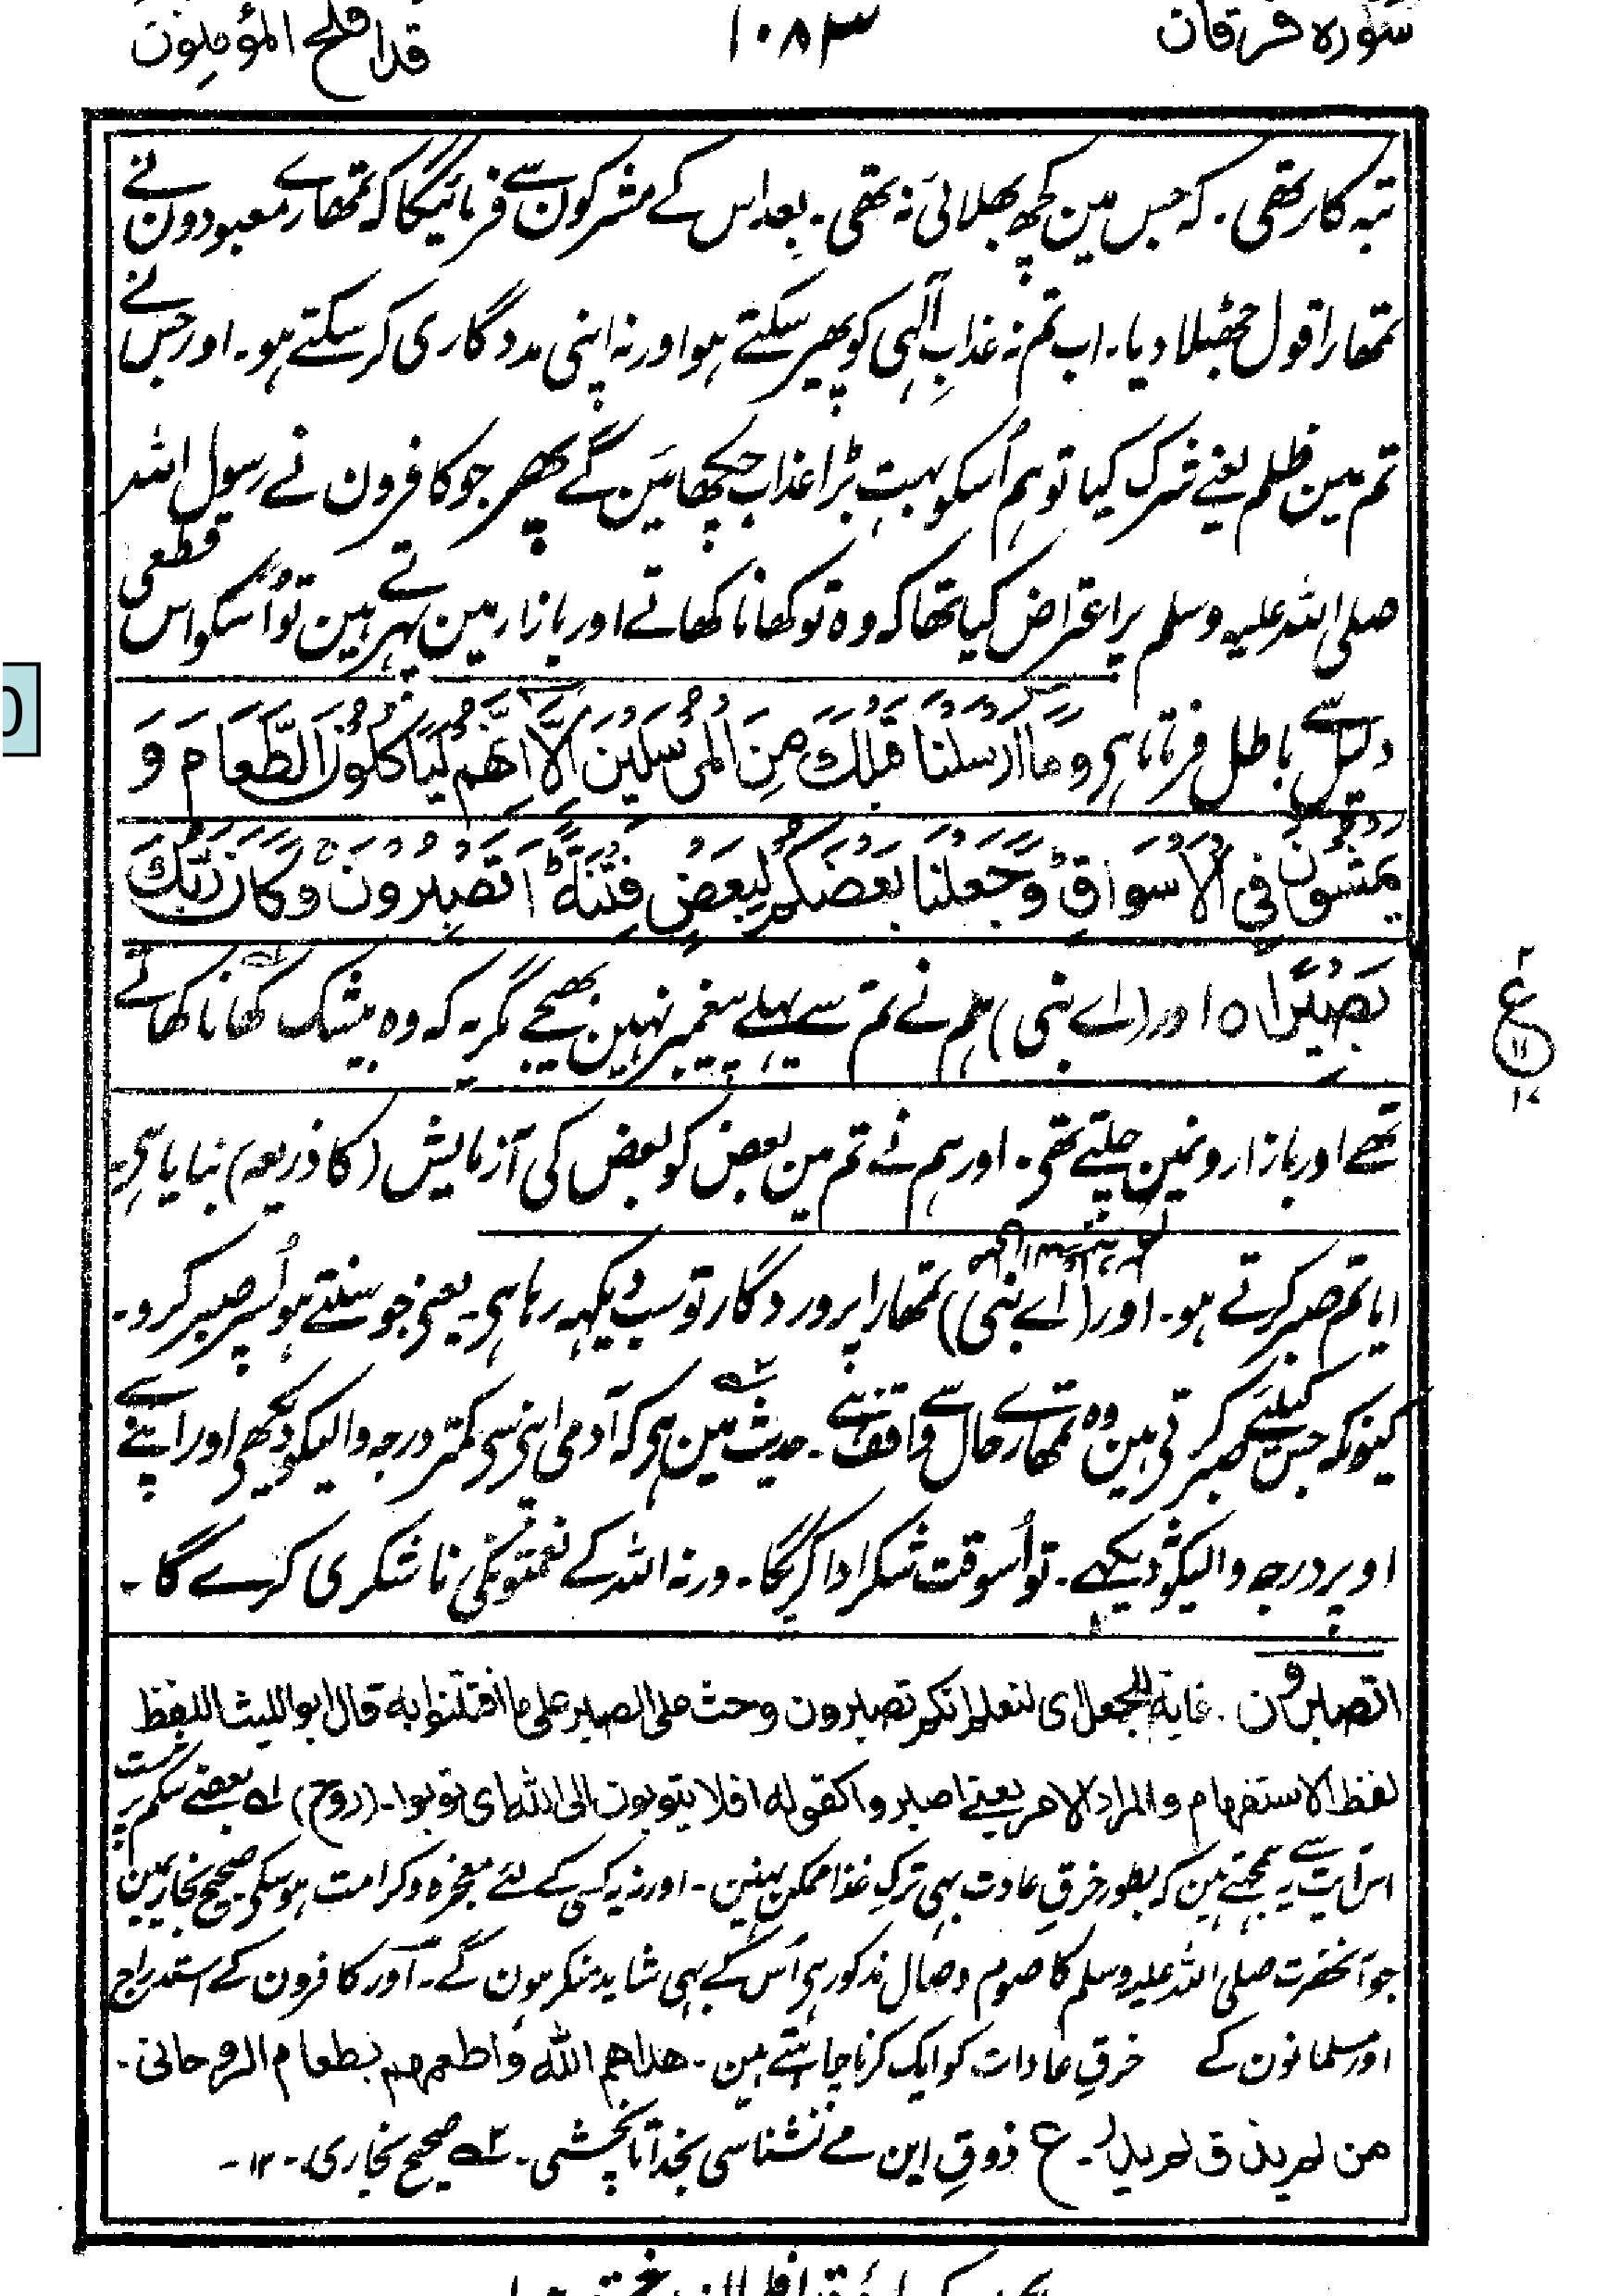 سورہ فرقان ۱۰۸۳ قد افلح المؤمنون
تبہ کار تھی۔ کہ جس مین کچھ بھلائی نہ تھی۔ بعد اس کے مشرکون سے فرمائیگا کہ تمھارے معبودون نے
تمھارا قول جھٹلا دیا۔ اب تم نہ عذابِ آلٰہی کو پھیر سکتے ہو اور نہ اپنی مددگاری کر سکتے ہو۔ اور جس نے
تم مین ظلم یعنے شرک کیا تو ہم اُسکو بہت بڑا عذاب چکھائین گے پھر جو کافرون نے رسول اللہ
صلی اللہ علیہ وسلم پر اعتراض کیا تھا کہ وہ تو کھانا کھاتے اور بازار مین پہرتے ہین تو اُسکو اس قطعی
دلیل سے باطل فرماتا ہی وَمَا اَرْسَلْنَا قَبْلَكَ مِنَ الْمُرْسَلِيْنَ اِلَّا اِنَّهُمْ لَيَاْكُلُوْنَ الطَّعَامَ وَ
يَمْشُوْنَ فِي الْاَسْوَاقِ ؕ وَجَعَلْنَا بَعْضَكُمْ لِبَعْضٍ فِتْنَةً ؕ اَتَصْبِرُوْنَ ۚ وَكَانَ رَبُّكَ
بَصِيْرًا ○ اور (اے نبی) ہم نے تم سے پہلے پیغمبر نہین بھیجے مگر یہ کہ وہ بیشک کھانا کھاتے
تھے اور بازارونمین چلتے تھی۔ اور ہم نے تم مین بعض کو بعض کی آزمایش (کا ذریعہ) بنایا ہی۔
ایا تم صبر کرتے ہو۔ اور (اے نبی) تمھارا پروردگار تو سب دیکھہ رہا ہی۔ یعنی جو سنتے ہو اُسپر صبر کرو۔
کیونکہ جس کیلئے صبر کرتی ہین وہ تمھارے حال سے واقف ہے۔ حدیث مین ہی کہ آدمی اپنی سی کمتر درجہ والیکو دیکھی اور اپنے سے
اوپر درجہ والیکو نہ دیکھے۔ تو اُسوقت شکر ادا کریگا۔ ورنہ اللہ کے نعمتونکی ناشکری کرے گا۔
اتصبرون۔ غاية الجعل ای لنعلم انكم تصبرون وحث على الصبر على ما افتتنوا به قال ابو الليث اللفظ
لفظ الاستفهام والمراد الامر يعنے اصبروا كقوله افلا يتوبون الى الله ای توبوا۔ (روح) ۱ہ بعضے شکم پرست
اس آیت سے یہ سمجھتے ہین کہ بطور خرقِ عادت بہی ترکِ غذا ممکن نہین۔ اور نہ یہ کسی کے لئے معجزہ وکرامت ہو سکی صحیح بخاریمین
جو آنحضرت صلی اللہ علیہ وسلم کا صوم وصال مذکور ہی اُس کے بہی شاید منکر ہون گے۔ آور کافرون کے استدراج
اور مسلمانون کے خرقِ عادات کو ایک کرنا چاہتے ہین۔ هداهم الله واطعمهم بطعام الروحانی۔
من لم يذق لم يدر۔ ع ذوقِ این مے نشناسی بخدا تا نچشی۔ ۲ہ صحیح بخاری۔ ۱۲۔
ع